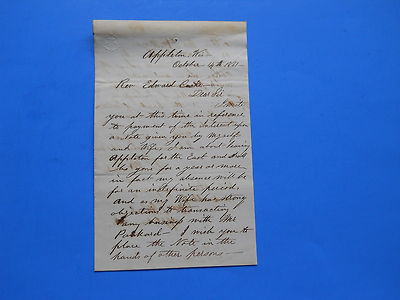 Appleton Wis
October 14th 1871
Rev Edward Cooke
Dear Sir
I write
you at this time in reference
to payment of the Interest upon
a Note given you by myself
and Wife, I am about leaving
Appleton for the East and shall
be gone for a year or more
in fact my absence will be
for an indefinite period,
and as my Wife has strong
objections to transacting
any business with Mr
Packard — I wish you to
place the Note in the
hands of other persons —